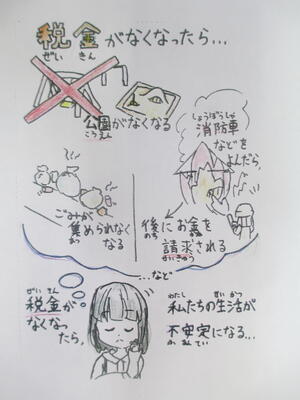 税金がなくなったら…
ぜい きん
公園がなくなる
こうえん
しょうぼうしゃ
消防車
などを
よんだら、
ごみが
集められなく
あつ
なる
後にお金を
のち かね
請求される
せいきゅう
…など
ぜい きん
税金が
なくなっ
たら、
わたし せい かつ
私たちの生活が
不安定になる…
ふ あん てい